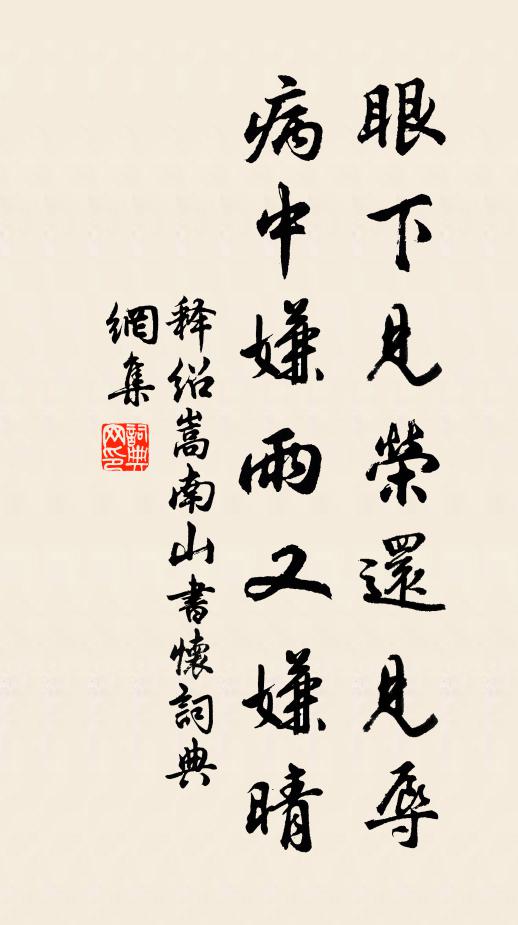 眼下見榮還見辱
病中嫌雨又嫌晴
释绍嵩南山書懷詞典
網集
詞典
网印